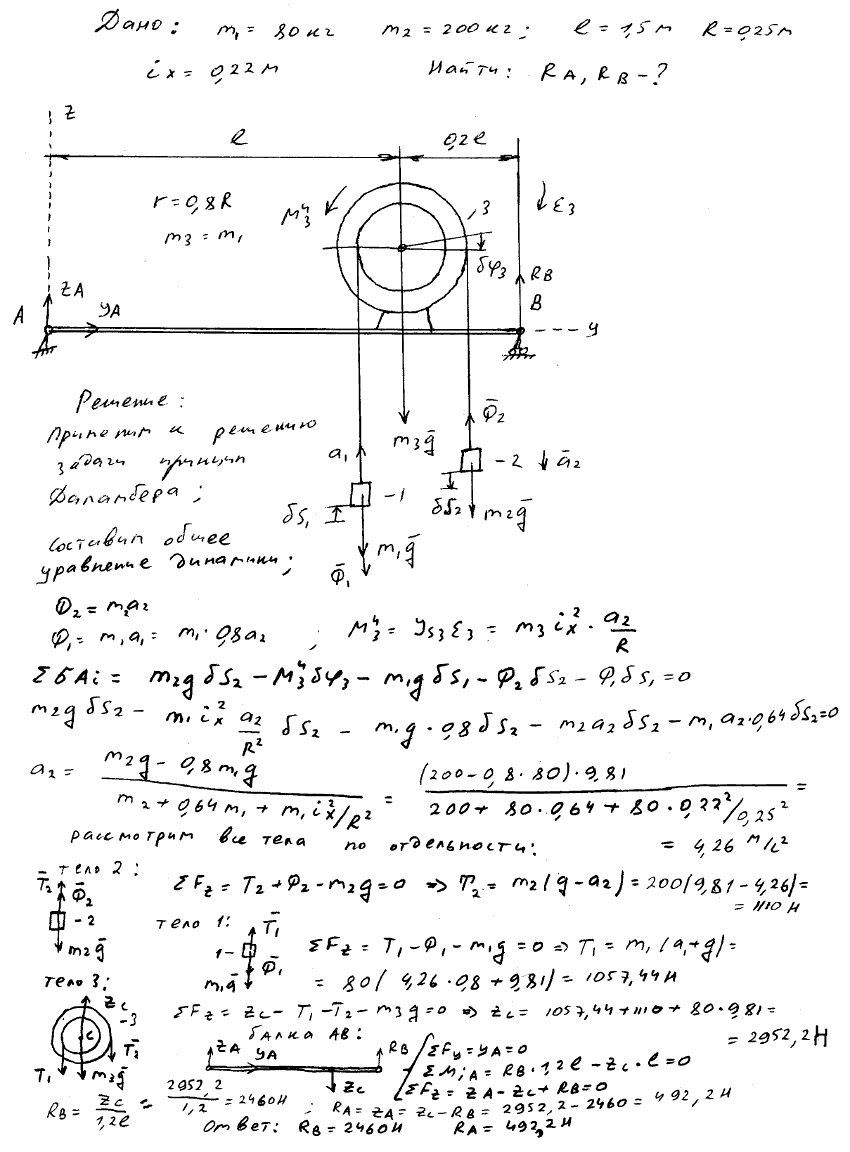 Дано: m₁ = 80 кг m₂ = 200 кг; ℓ = 1,5 м R = 0,25 м
iₓ = 0,22 м Найти: R_A, R_B - ?
z
ℓ 0,2ℓ
r = 0,8R
m₃ = m₁
M₃ᶲ
3
ε₃
δφ₃
z_A
R_B
A
y_A
B
y
Решение:
Применим к решению
задачи принцип
Даламбера;
a₁
m₃g̅
Φ̅₂
-2
a̅₂
-1
δS₁
δS₂
m₂g̅
m₁g̅
Φ̅₁
составим общее
уравнение динамики;
Φ₂ = m₂a₂
Φ₁ = m₁a₁ = m₁·0,8a₂ ; M₃ᶲ = J₃ε₃ = m₃iₓ²·a₂/R
ΣδAi = m₂g δS₂ - M₃ᶲδφ₃ - m₁g δS₁ - Φ₂δS₂ - Φ₁δS₁ = 0
m₂g δS₂ - m₁iₓ² a₂/R² δS₂ - m₁g·0,8δS₂ - m₂a₂δS₂ - m₁a₂·0,64δS₂ = 0
a₂ = (m₂g - 0,8m₁g)/(m₂ + 0,64m₁ + m₁iₓ²/R²) = (200 - 0,8·80)·9,81/(200 + 80·0,64 + 80·0,22²/0,25²) =
= 4,26 м/с²
рассмотрим все тела по отдельности:
тело 2:
T̅₂
Φ̅₂
-2
m₂g̅
ΣF_z = T₂ + Φ₂ - m₂g = 0 => T₂ = m₂(g - a₂) = 200(9,81 - 4,26) =
= 1110 Н
тело 1:
T̅₁
1-
Φ̅₁
m₁g̅
ΣF_z = T₁ - Φ₁ - m₁g = 0 => T₁ = m₁(a₁ + g) =
= 80(4,26·0,8 + 9,81) = 1057,44 Н
тело 3:
z_c
-3
c
T₁
T̅₂
m₃g̅
ΣF_z = z_c - T₁ - T₂ - m₃g = 0 => z_c = 1057,44 + 1110 + 80·9,81 =
= 2952,2 Н
балка AB:
z_A
y_A
R_B
z_c
ΣF_y = y_A = 0
ΣM_iA = R_B·1,2ℓ - z_c·ℓ = 0
ΣF_z = z_A - z_c + R_B = 0
R_B = z_c/1,2ℓ = 2952,2/1,2 = 2460 Н ; R_A = z_A = z_c - R_B = 2952,2 - 2460 = 492,2 Н
Ответ: R_B = 2460 Н R_A = 492,2 Н